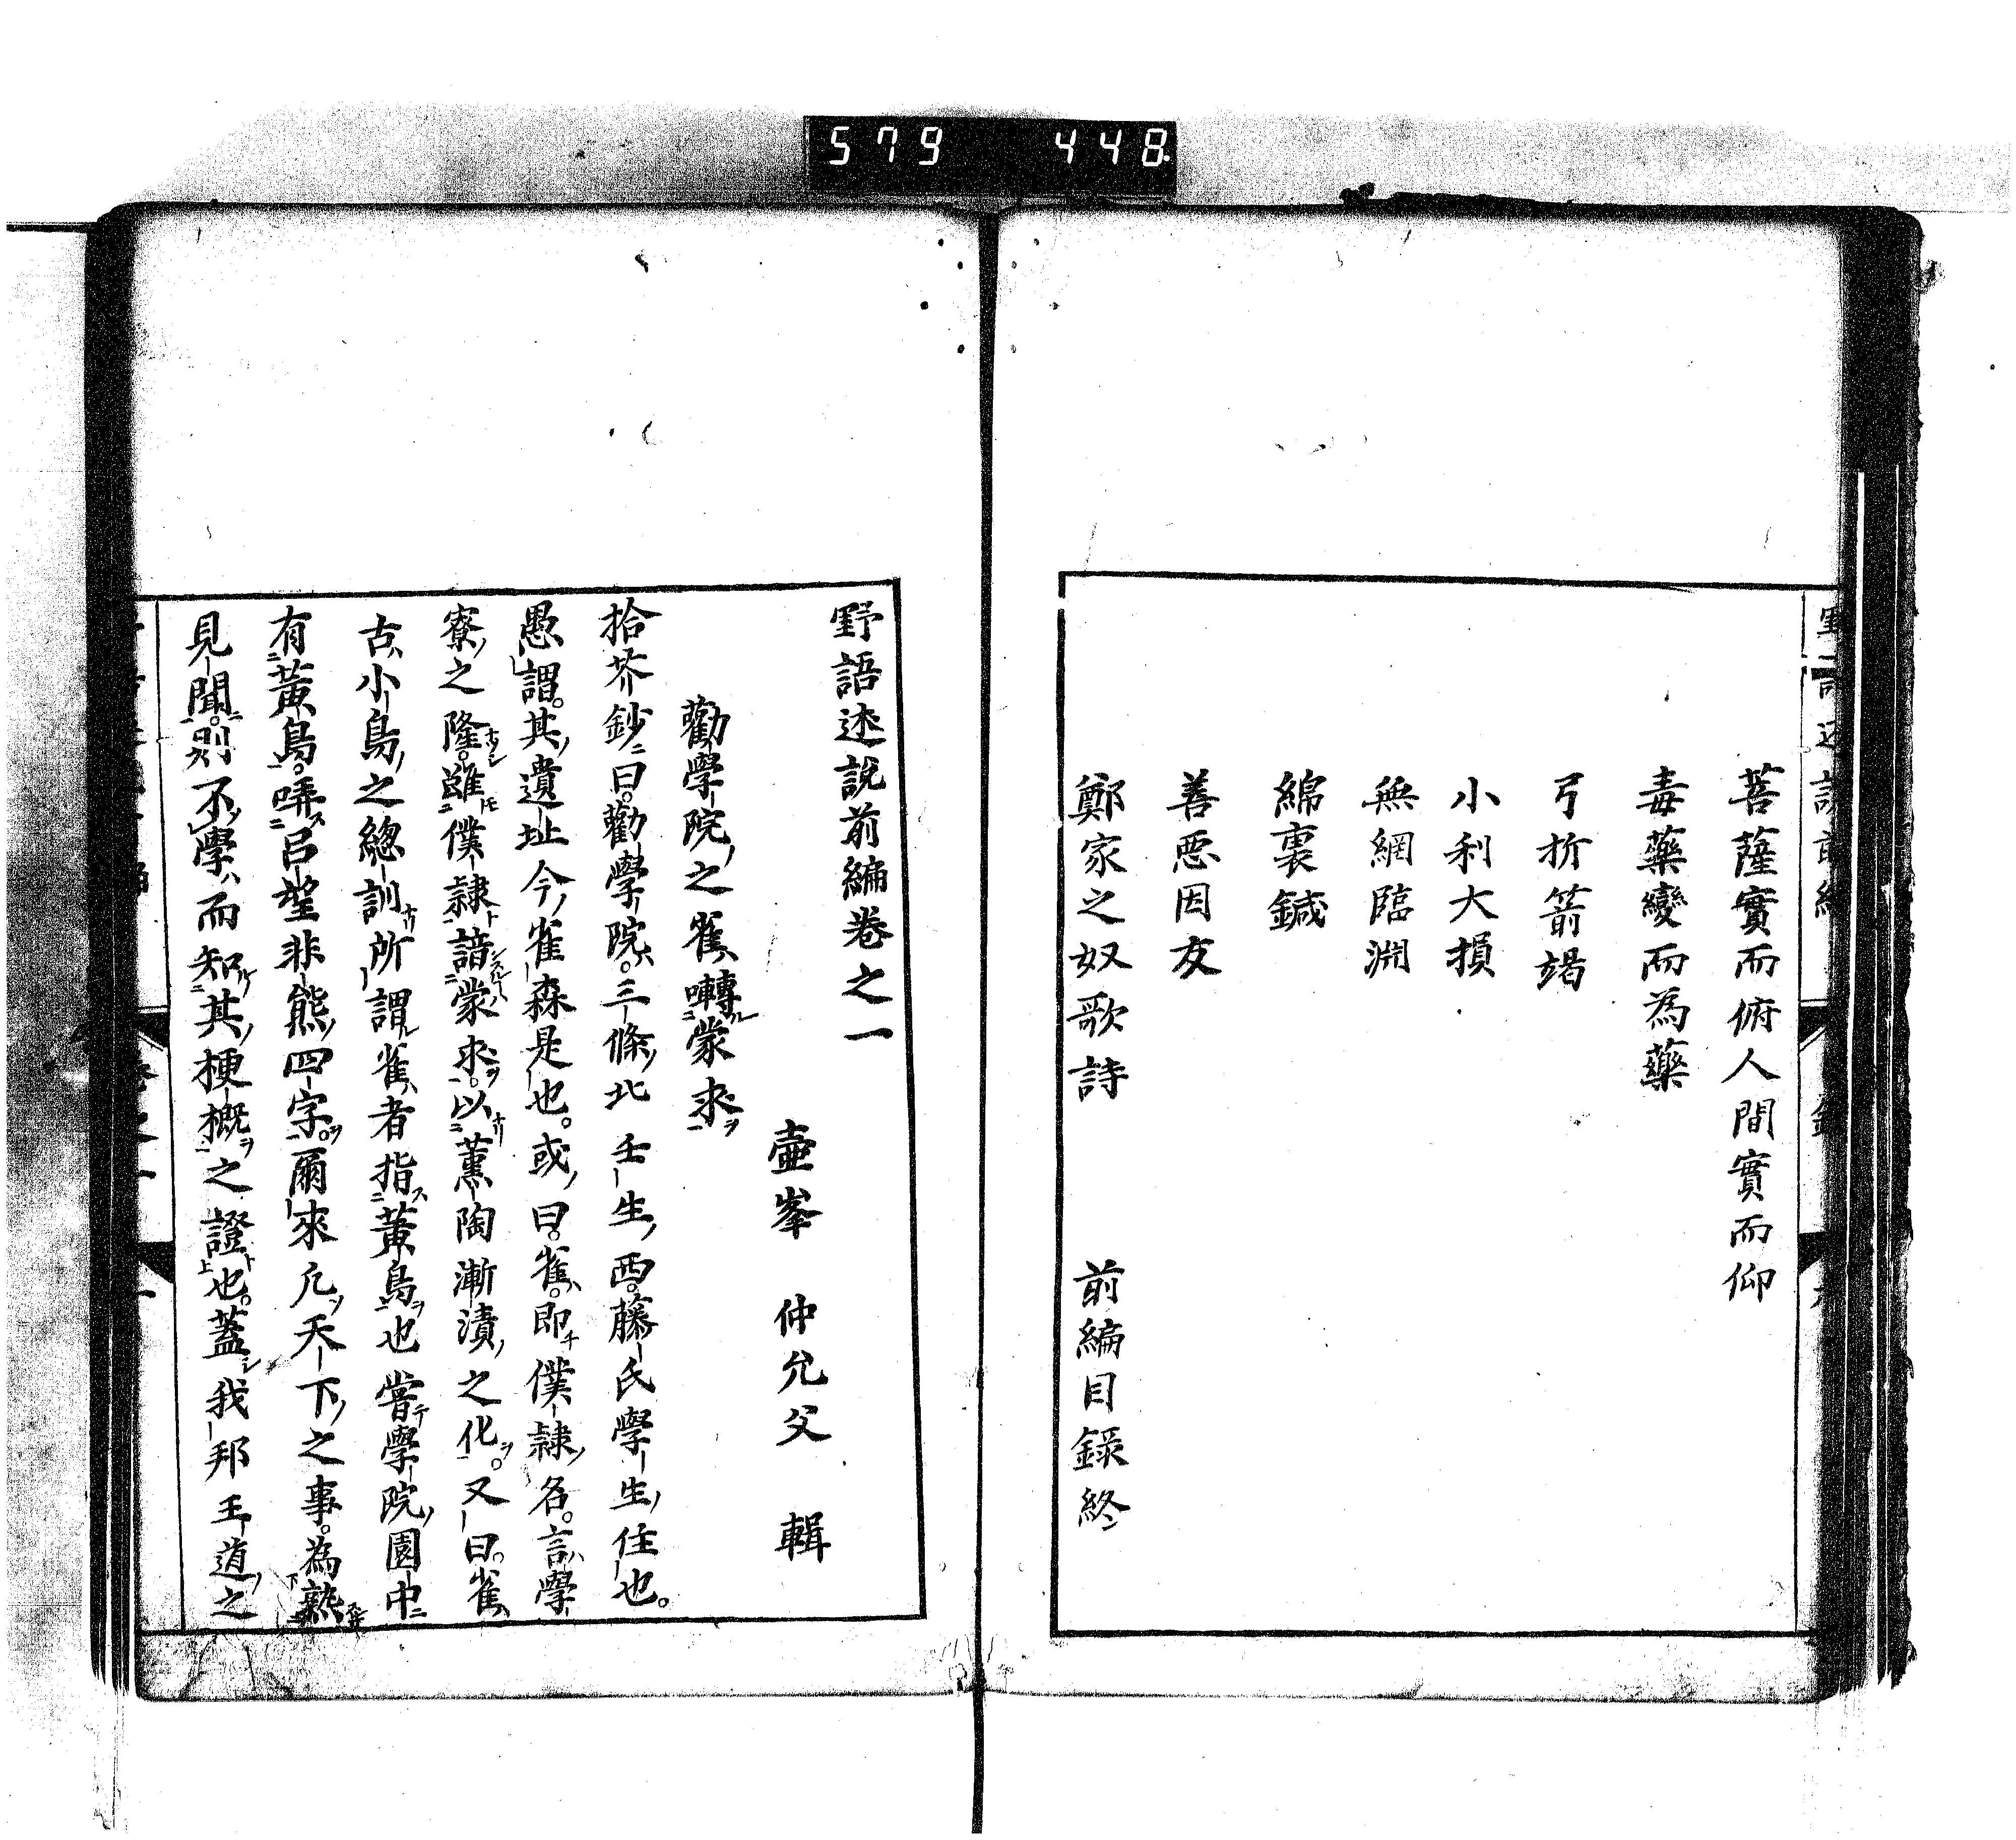 579 448
菩薩實而俯人間實而仰
毒藥變而為藥
弓折箭竭
小利大損
無網臨淵
綿裏鍼
善惡因友
鄭家之奴歌詩 前編目錄終
野語述說前編卷之一
壺峯 仲允父 輯
勸學院之雀囀蒙求
拾芥鈔曰。勸學院。三條北壬生西。藤氏學生住也。
愚謂。其遺址今雀森是也。或曰。雀。即僕隸名。言學
寮之隆。雖僕隸諳蒙求。以薰陶漸漬之化。又曰。雀
古小鳥之總訓所謂雀者指黃鳥也嘗學院園中
有黃鳥。哢呂望非熊四字。爾來凡天下之事。為熟
見聞。則不學而知其梗概之證也。蓋我邦王道之